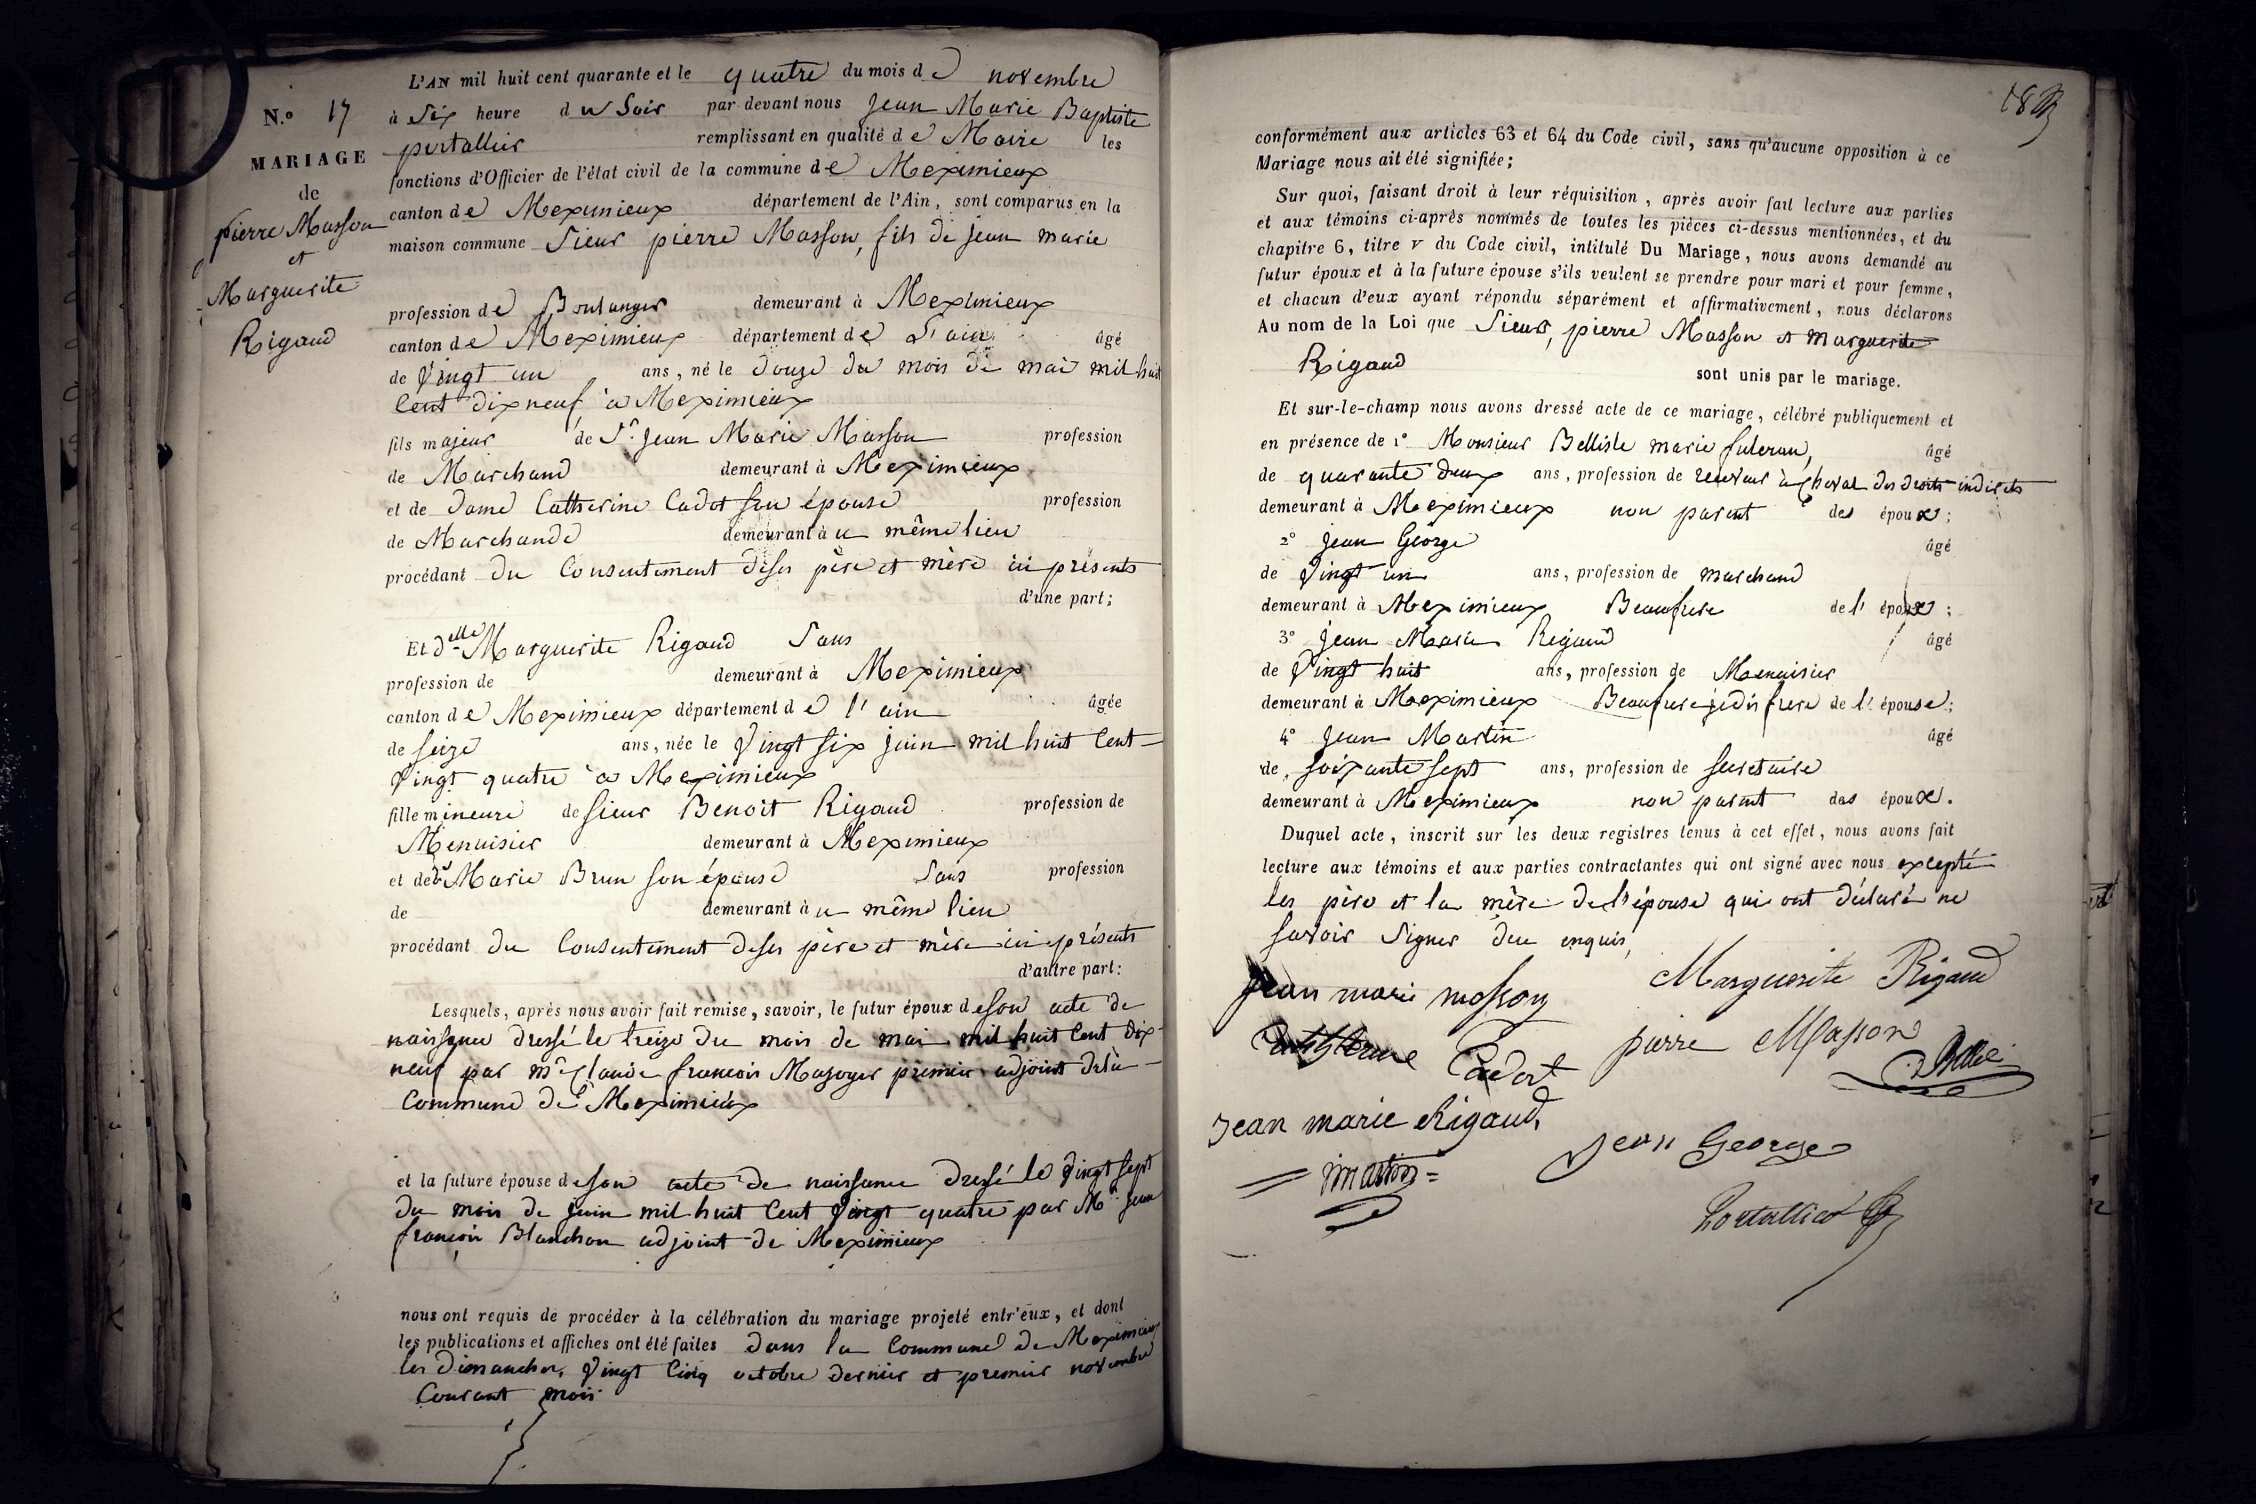 L'AN mil huit cent quarante et le quatre du mois de novembre
N.º 17
à Six heure du Soir par-devant nous Jean Marie Baptiste
portallier remplissant en qualité de Maire les
MARIAGE
fonctions d'Officier de l'état civil de la commune de Meximieux
de
canton de Meximieux département de l'Ain, sont comparus en la
pierre Masson
maison commune Sieur pierre Masson, fils de jean marie
et
Marguerite
Rigaud
profession de Boulanger demeurant à Meximieux
canton de Meximieux département de L'ain âgé
de Vingt un ans, né le douze du mois de mai mil huit
Cent dix neuf à Meximieux
fils majeur de Sr. Jean Marie Masson profession
de Marchand demeurant à Meximieux
et de Dame Catherine Cadot son épouse profession
de Marchande demeurant à u même lieu
procédant du Consentement de ses père et mère ici présents
d'une part;
Et Delle Marguerite Rigaud Sans
profession de demeurant à Meximieux
canton de Meximieux département de l'ain âgée
de seize ans, née le Vingt six juin mil huit Cent
Vingt quatre à Meximieux
fille mineure de sieur Benoit Rigaud profession de
Menuisier demeurant à Meximieux
et de Marie Brun son épouse Sans profession
de demeurant à u même lieu
procédant du Consentement de ses père et mère ici présents
d'autre part:
Lesquels, après nous avoir fait remise, savoir, le futur époux de son acte de
naissance dressé le treize du mois de mai mil huit Cent dix
neuf par Mr Claude francois premier adjoint de la
Commune de Meximieux
et la future épouse de son acte de naissance dressé le Vingt sept
du mois de juin mil huit Cent Vingt quatre par Mr jean
francois Blanchon adjoint de Meximieux
nous ont requis de procéder à la célébration du mariage projeté entr'eux, et dont
les publications et affiches ont été faites dans la Commune de Meximieux
les Dimanches, Vingt Cinq octobre dernier et premier novembre
Courant mois
conformément aux articles 63 et 64 du Code civil, sans qu'aucune opposition à ce
Mariage nous ait été signifiée;
Sur quoi, faisant droit à leur réquisition, après avoir fait lecture aux parties
et aux témoins ci-après nommés de toutes les pièces ci-dessus mentionnées, et du
chapitre 6, titre v du Code civil, intitulé Du Mariage, nous avons demandé au
futur époux et à la future épouse s'ils veulent se prendre pour mari et pour femme,
et chacun d'eux ayant répondu séparément et affirmativement, nous déclarons
Au nom de la Loi que Sieur, pierre Masson et Marguerite
Rigaud sont unis par le mariage.
Et sur-le-champ nous avons dressé acte de ce mariage, célébré publiquement et
en présence de 1º Monsieur Bellisle marie âgé
de quarante deux ans, profession de receveur à Cheval des droits indirects
demeurant à Meximieux non parent des époux;
2º Jean George âgé
de Vingt un ans, profession de marchand
demeurant à Meximieux Beaufrere de l'époux;
3º Jean Marie Rigaud âgé
de Vingt huit ans, profession de Menuisier
demeurant à Meximieux Beaufrere je dis frere de l'épouse;
4º Jean Martin âgé
de soixante sept ans, profession de secretaire
demeurant à Meximieux non parent des époux.
Duquel acte, inscrit sur les deux registres tenus à cet effet, nous avons fait
lecture aux témoins et aux parties contractantes qui ont signé avec nous excepté
les père et la mère de l'épouse qui ont déclaré ne
savoir signer de ce enquis,
Jean marie masson Marguerite Rigaud
Cadot pierre Masson
Jean marie Rigaud, Jean George
Martin
Portallier